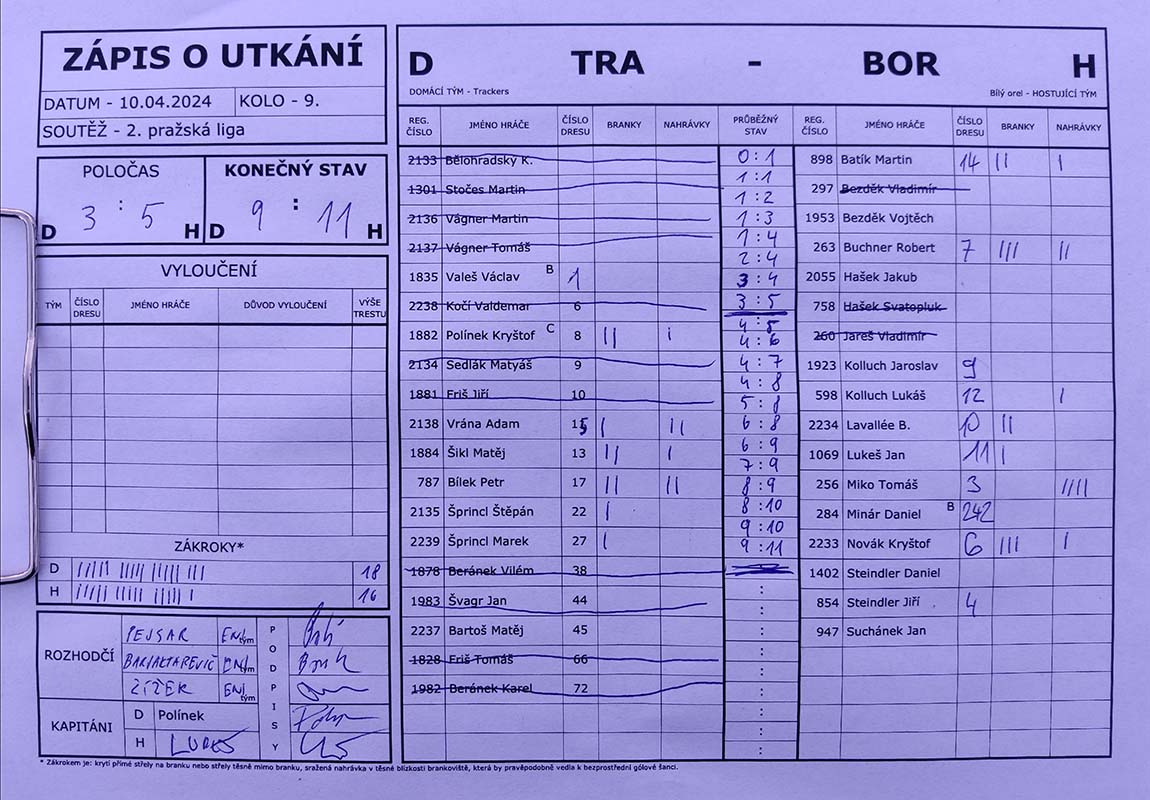 ZÁPIS O UTKÁNÍ
DATUM - 10.04.2024 KOLO - 9.
SOUTĚŽ - 2. pražská liga
POLOČAS KONEČNÝ STAV
D 3 : 5 H D 9 : 11 H
VYLOUČENÍ
TÝM ČÍSLO DRESU JMÉNO HRÁČE DŮVOD VYLOUČENÍ VÝŠE TRESTU
ZÁKROKY*
D IIIII IIIII IIIII III 18
H IIIII IIIII IIIII I 16
ROZHODČÍ
PEJSAR tým
tým
ŽÍTEK tým
PODPISY
KAPITÁNI
D Polínek
H LUKEŠ
D TRA - BOR H
DOMÁCÍ TÝM - Trackers Bílý orel - HOSTUJÍCÍ TÝM
REG. ČÍSLO JMÉNO HRÁČE ČÍSLO DRESU BRANKY NAHRÁVKY PRŮBĚŽNÝ STAV REG. ČÍSLO JMÉNO HRÁČE ČÍSLO DRESU BRANKY NAHRÁVKY
2133 Bělohradský K.
1301 Stočes Martin
2136 Vágner Martin
2137 Vágner Tomáš
1835 Valeš Václav B 1
2238 Kočí Valdemar 6
1882 Polínek Kryštof C 8 II I
2134 Sedlák Matyáš 9
1881 Friš Jiří 10
2138 Vrána Adam 15 I II
1884 Šikl Matěj 13 II I
787 Bílek Petr 17 II II
2135 Šprincl Štěpán 22 I
2239 Šprincl Marek 27 I
1878 Beránek Vilém 38
1983 Švagr Jan 44
2237 Bartoš Matěj 45
1828 Friš Tomáš 66
1982 Beránek Karel 72
0:1
1:1
1:2
1:3
1:4
2:4
3:4
3:5
4:5
4:6
4:7
4:8
5:8
6:8
6:9
7:9
8:9
8:10
9:10
9:11
:
:
:
:
:
:
:
898 Batík Martin 14 II I
297 Bezděk Vladimír
1953 Bezděk Vojtěch
263 Buchner Robert 7 III II
2055 Hašek Jakub
758 Hašek Svatopluk
260 Jareš Vladimír
1923 Kolluch Jaroslav 9
598 Kolluch Lukáš 12 I
2234 Lavallée B. 10 II
1069 Lukeš Jan 11 I
256 Miko Tomáš 3 IIII
284 Minár Daniel B 242
2233 Novák Kryštof 6 III I
1402 Steindler Daniel
854 Steindler Jiří 4
947 Suchánek Jan
* Zákrokem je: krytí přímé střely na branku nebo střely těsně mimo branku, sražená nahrávka v těsné blízkosti brankoviště, která by pravěpodobně vedla k bezprostřední gólové šanci.